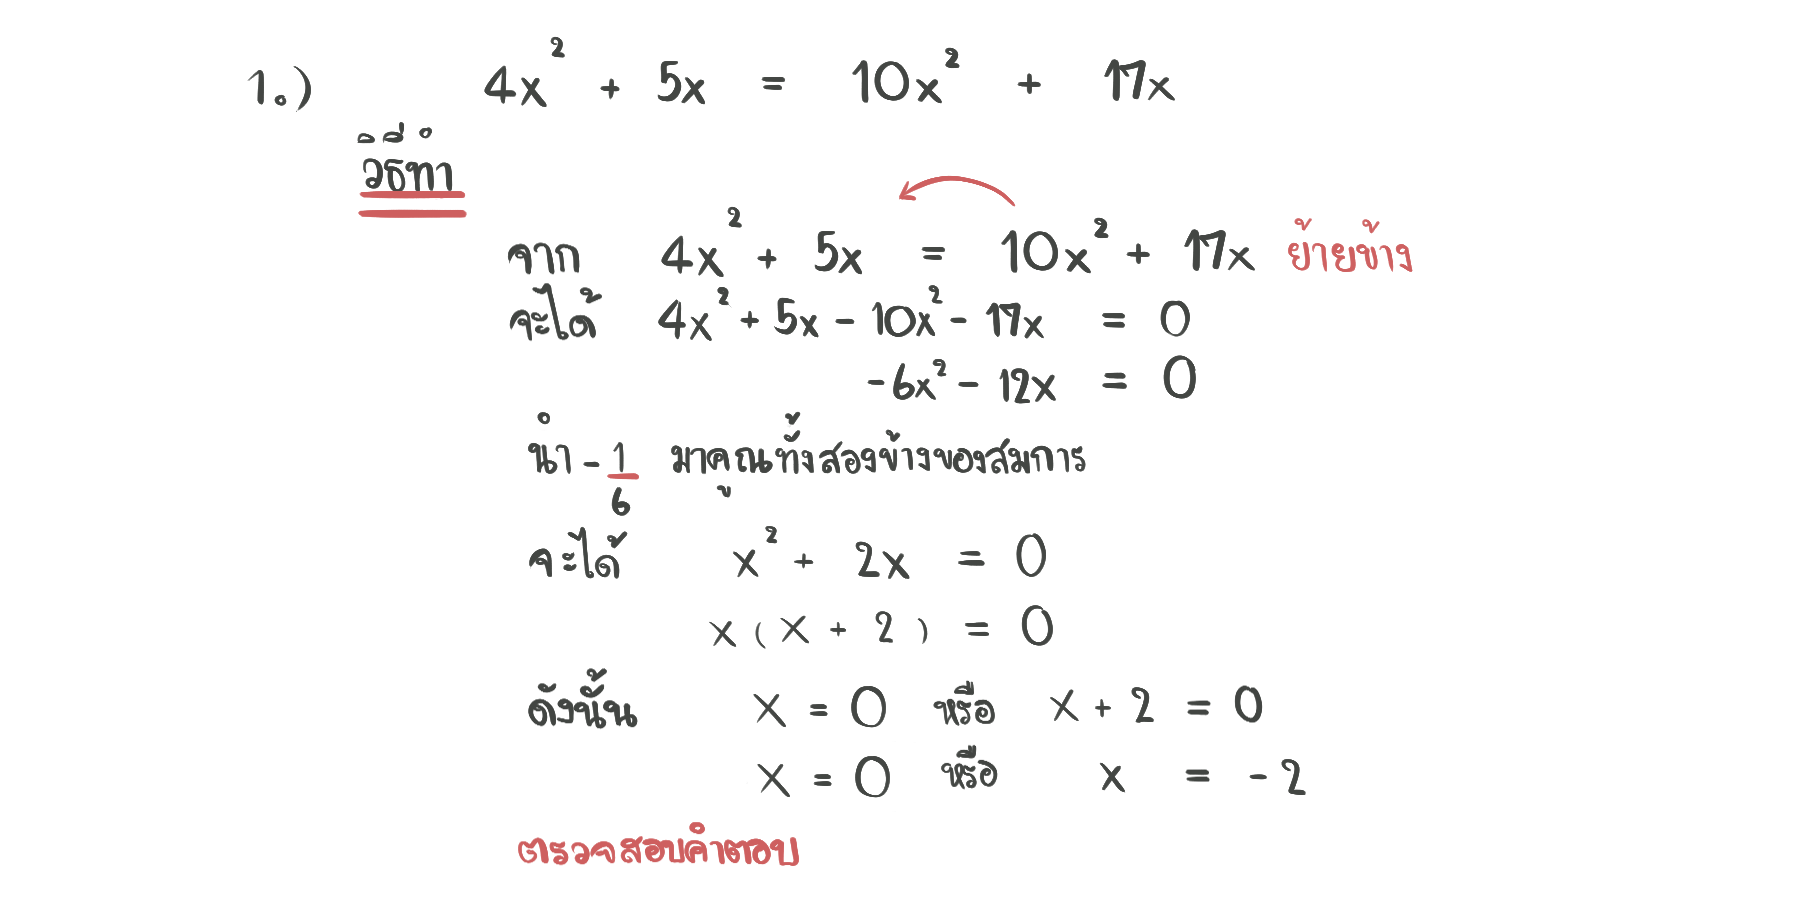 1.) 4x² + 5x = 10x² + 17x
วิธีทำ
จาก 4x² + 5x = 10x² + 17x ย้ายข้าง
จะได้ 4x² + 5x - 10x² - 17x = 0
-6x² - 12x = 0
นำ -1/6 มาคูณทั้งสองข้างของสมการ
จะได้ x² + 2x = 0
x(x + 2) = 0
ดังนั้น x = 0 หรือ x + 2 = 0
x = 0 หรือ x = -2
ตรวจสอบคำตอบ